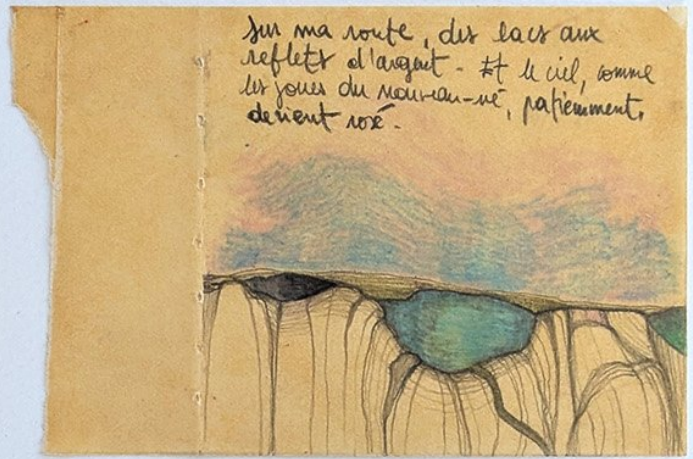 sur ma route, des lacs aux
reflets d'argent - Et le ciel, comme
les joues du nouveau-né, patiemment,
devient rosé.